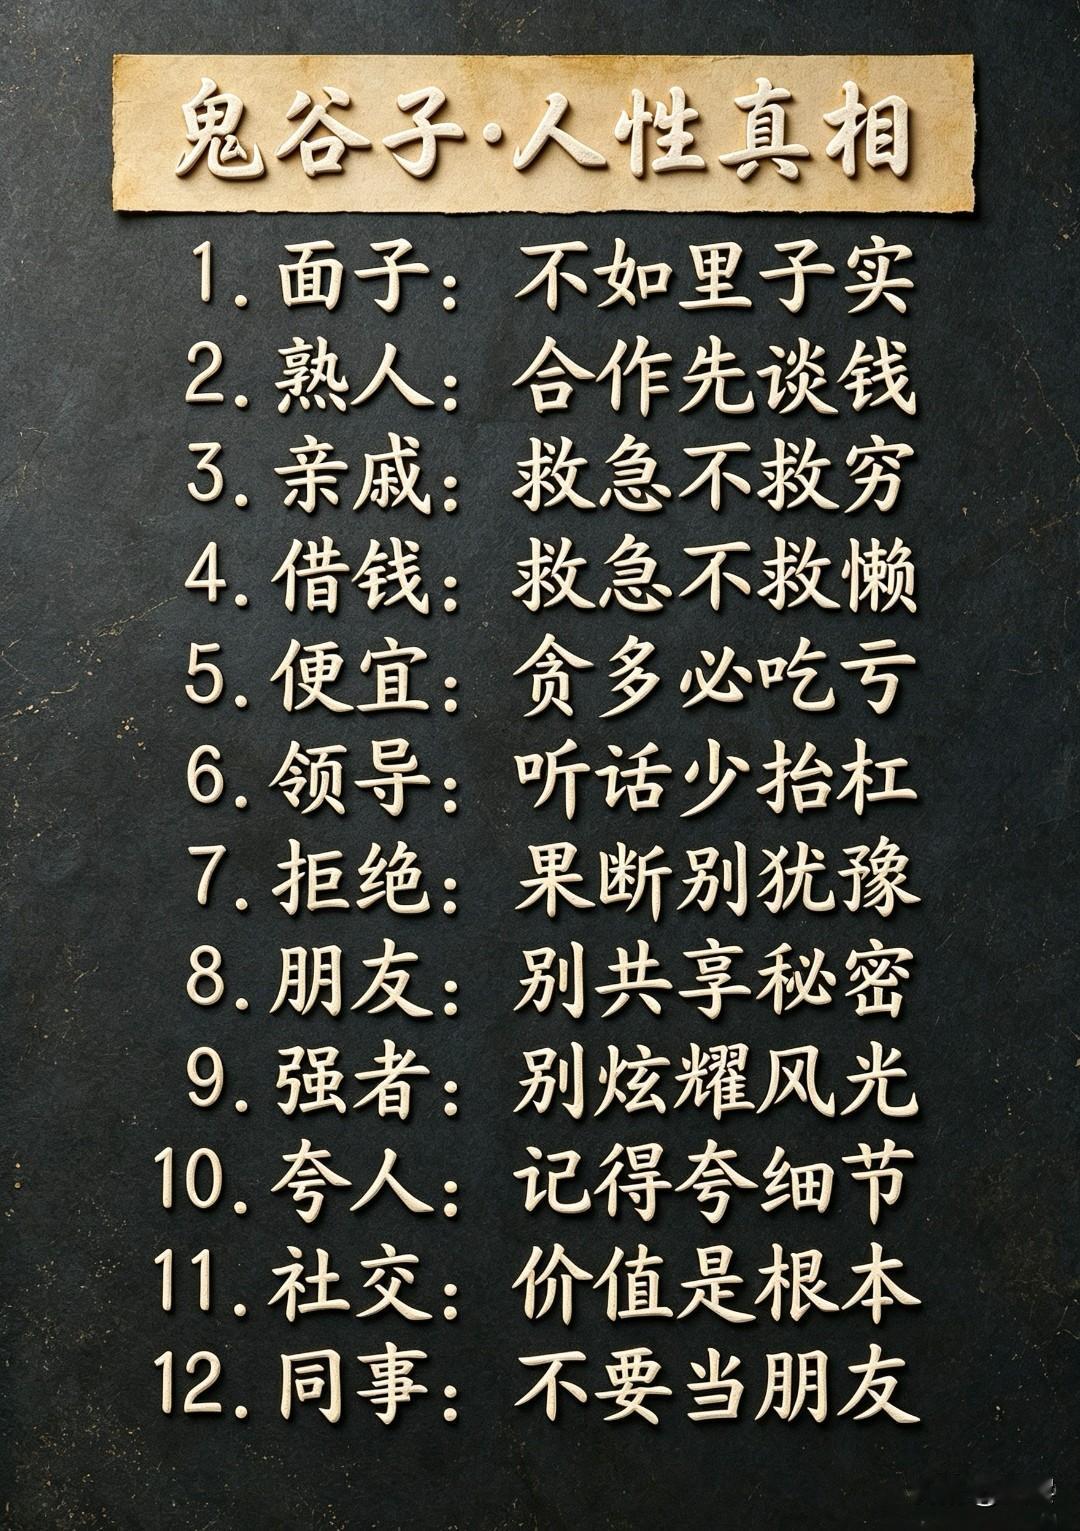 鬼谷子·人性真相
1. 面子： 不如里子实
2. 熟人： 合作先谈钱
3. 亲戚： 救急不救穷
4. 借钱： 救急不救懒
5. 便宜： 贪多必吃亏
6. 领导： 听话少抬杠
7. 拒绝： 果断别犹豫
8. 朋友： 别共享秘密
9. 强者： 别炫耀风光
10. 夸人： 记得夸细节
11. 社交： 价值是根本
12. 同事： 不要当朋友